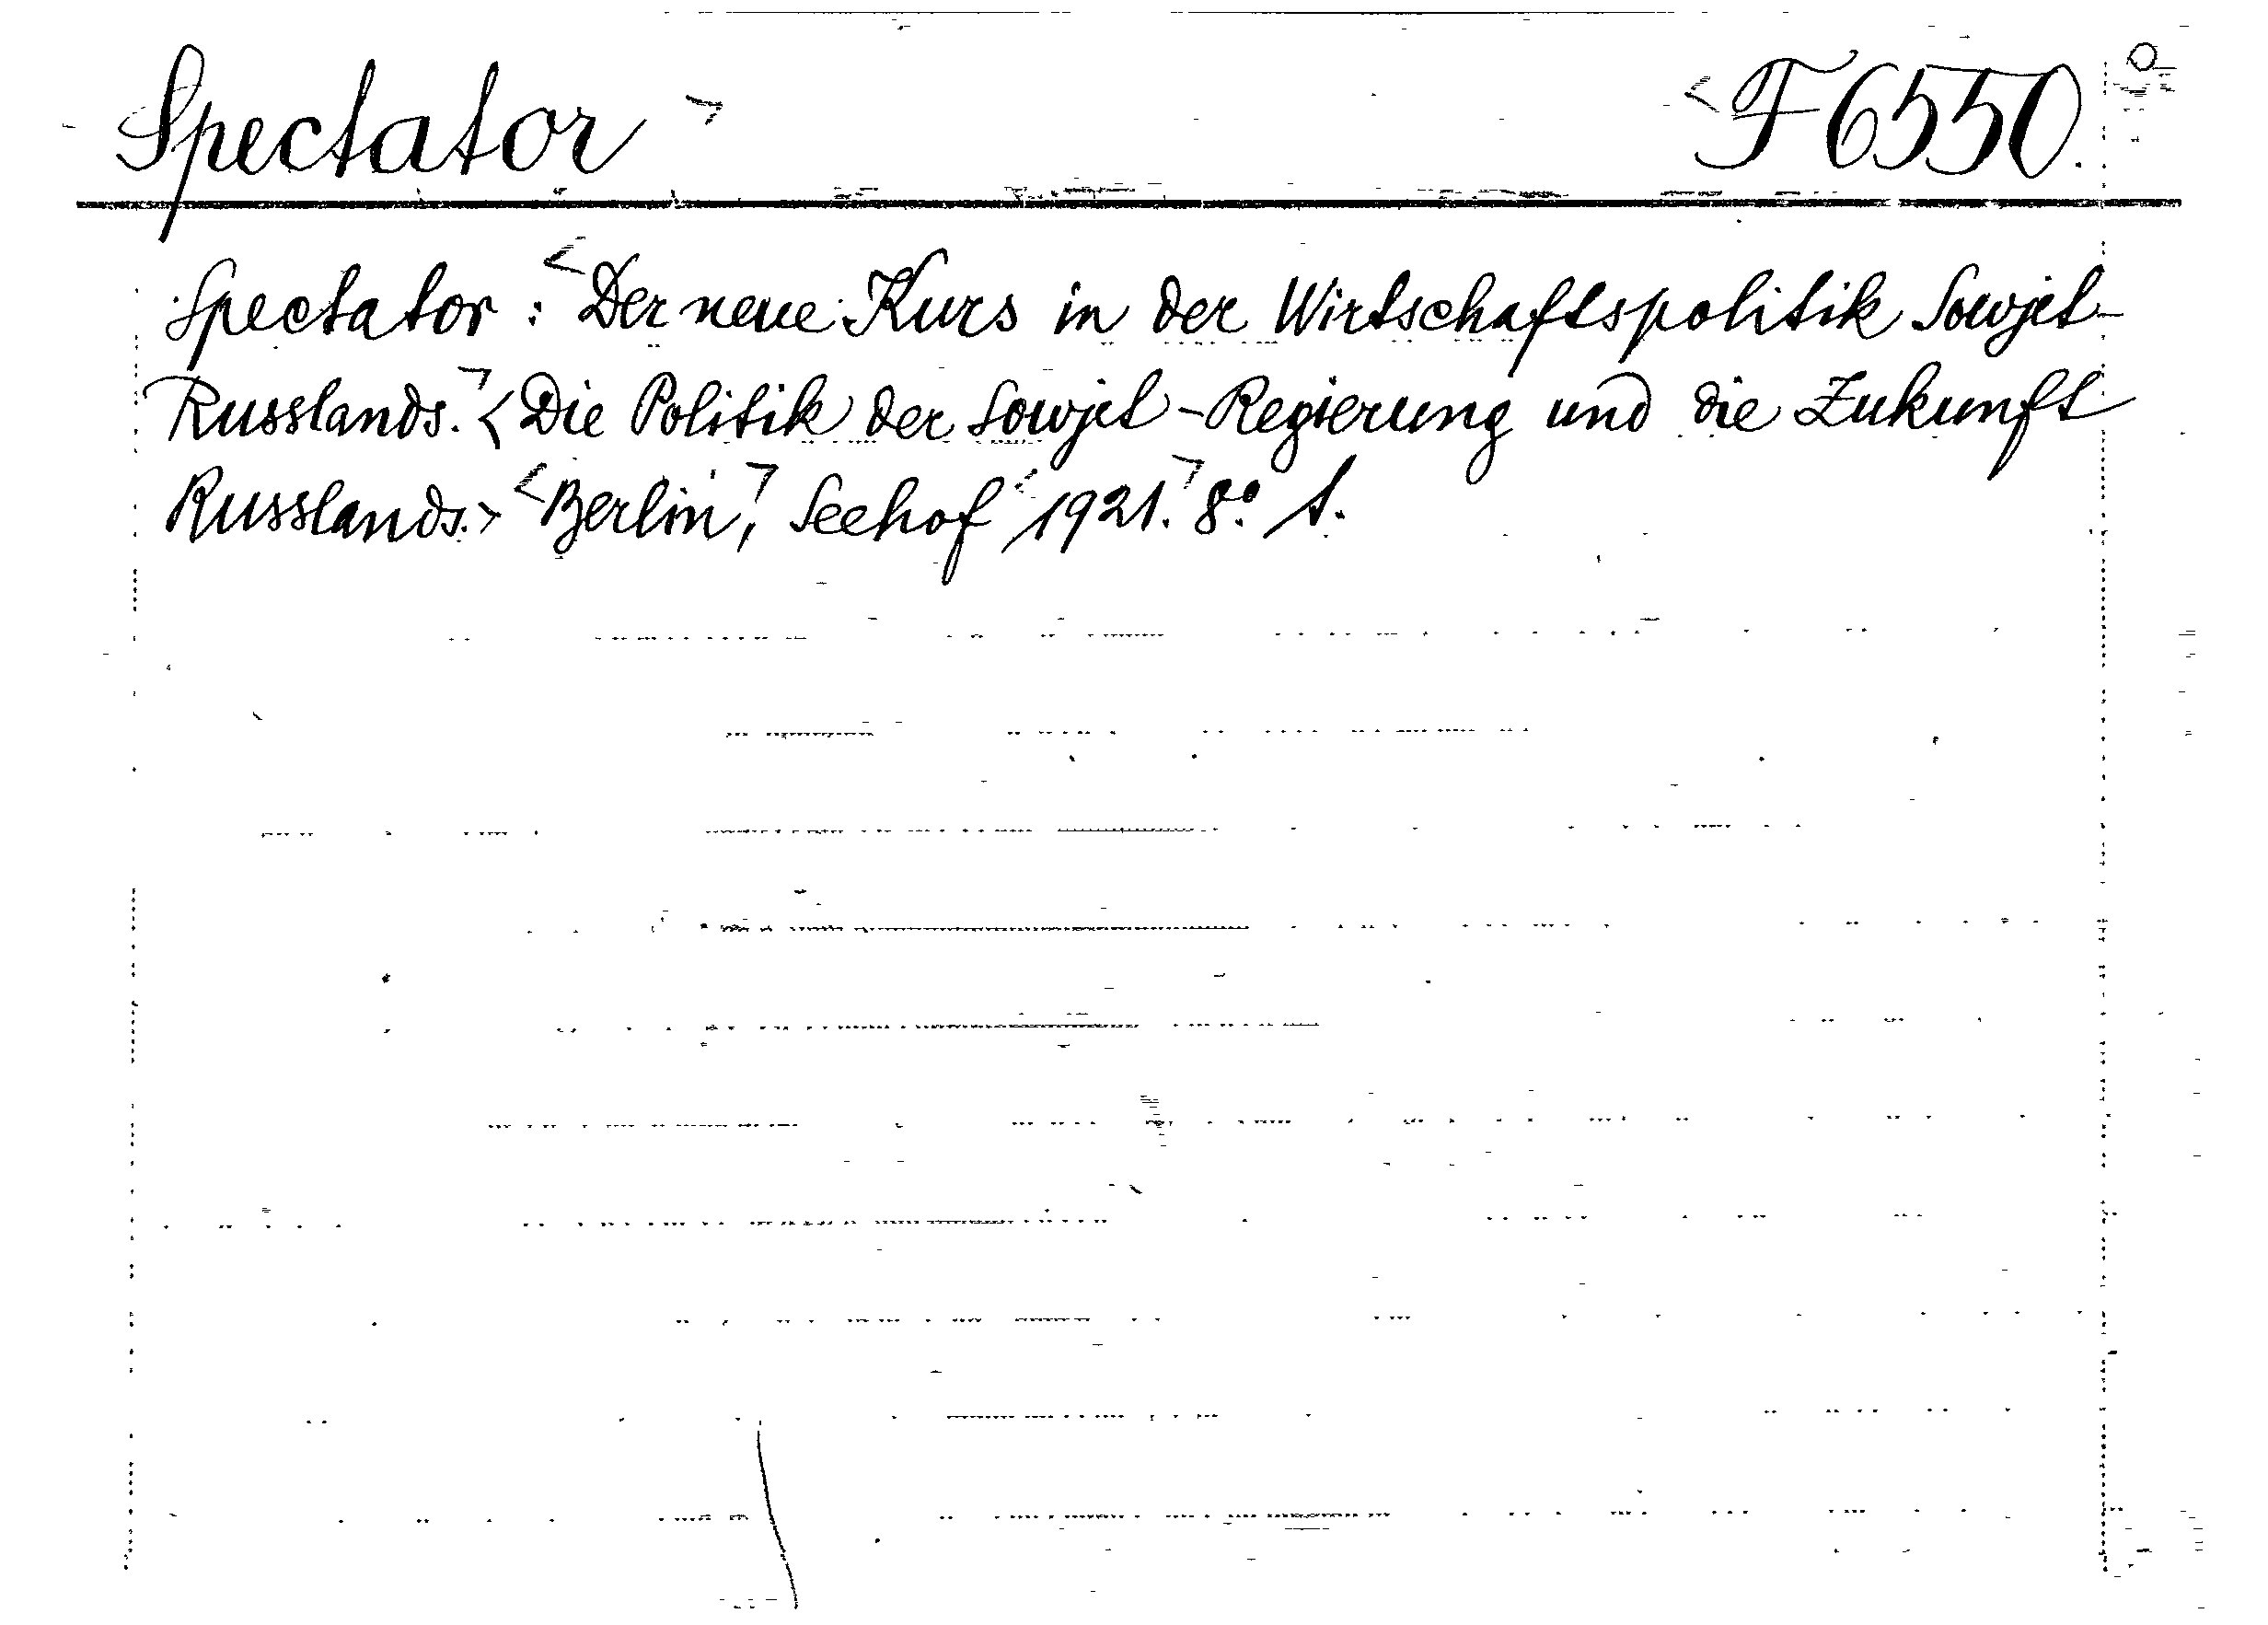 Spectator F6550.
Spectator: Der neue Kurs in der Wirtschaftspolitik Sowjet-
Russlands. <Die Politik der Sowjet-Regierung und die Zukunft
Russlands.> Berlin, Seehof 1921. 8° 1.